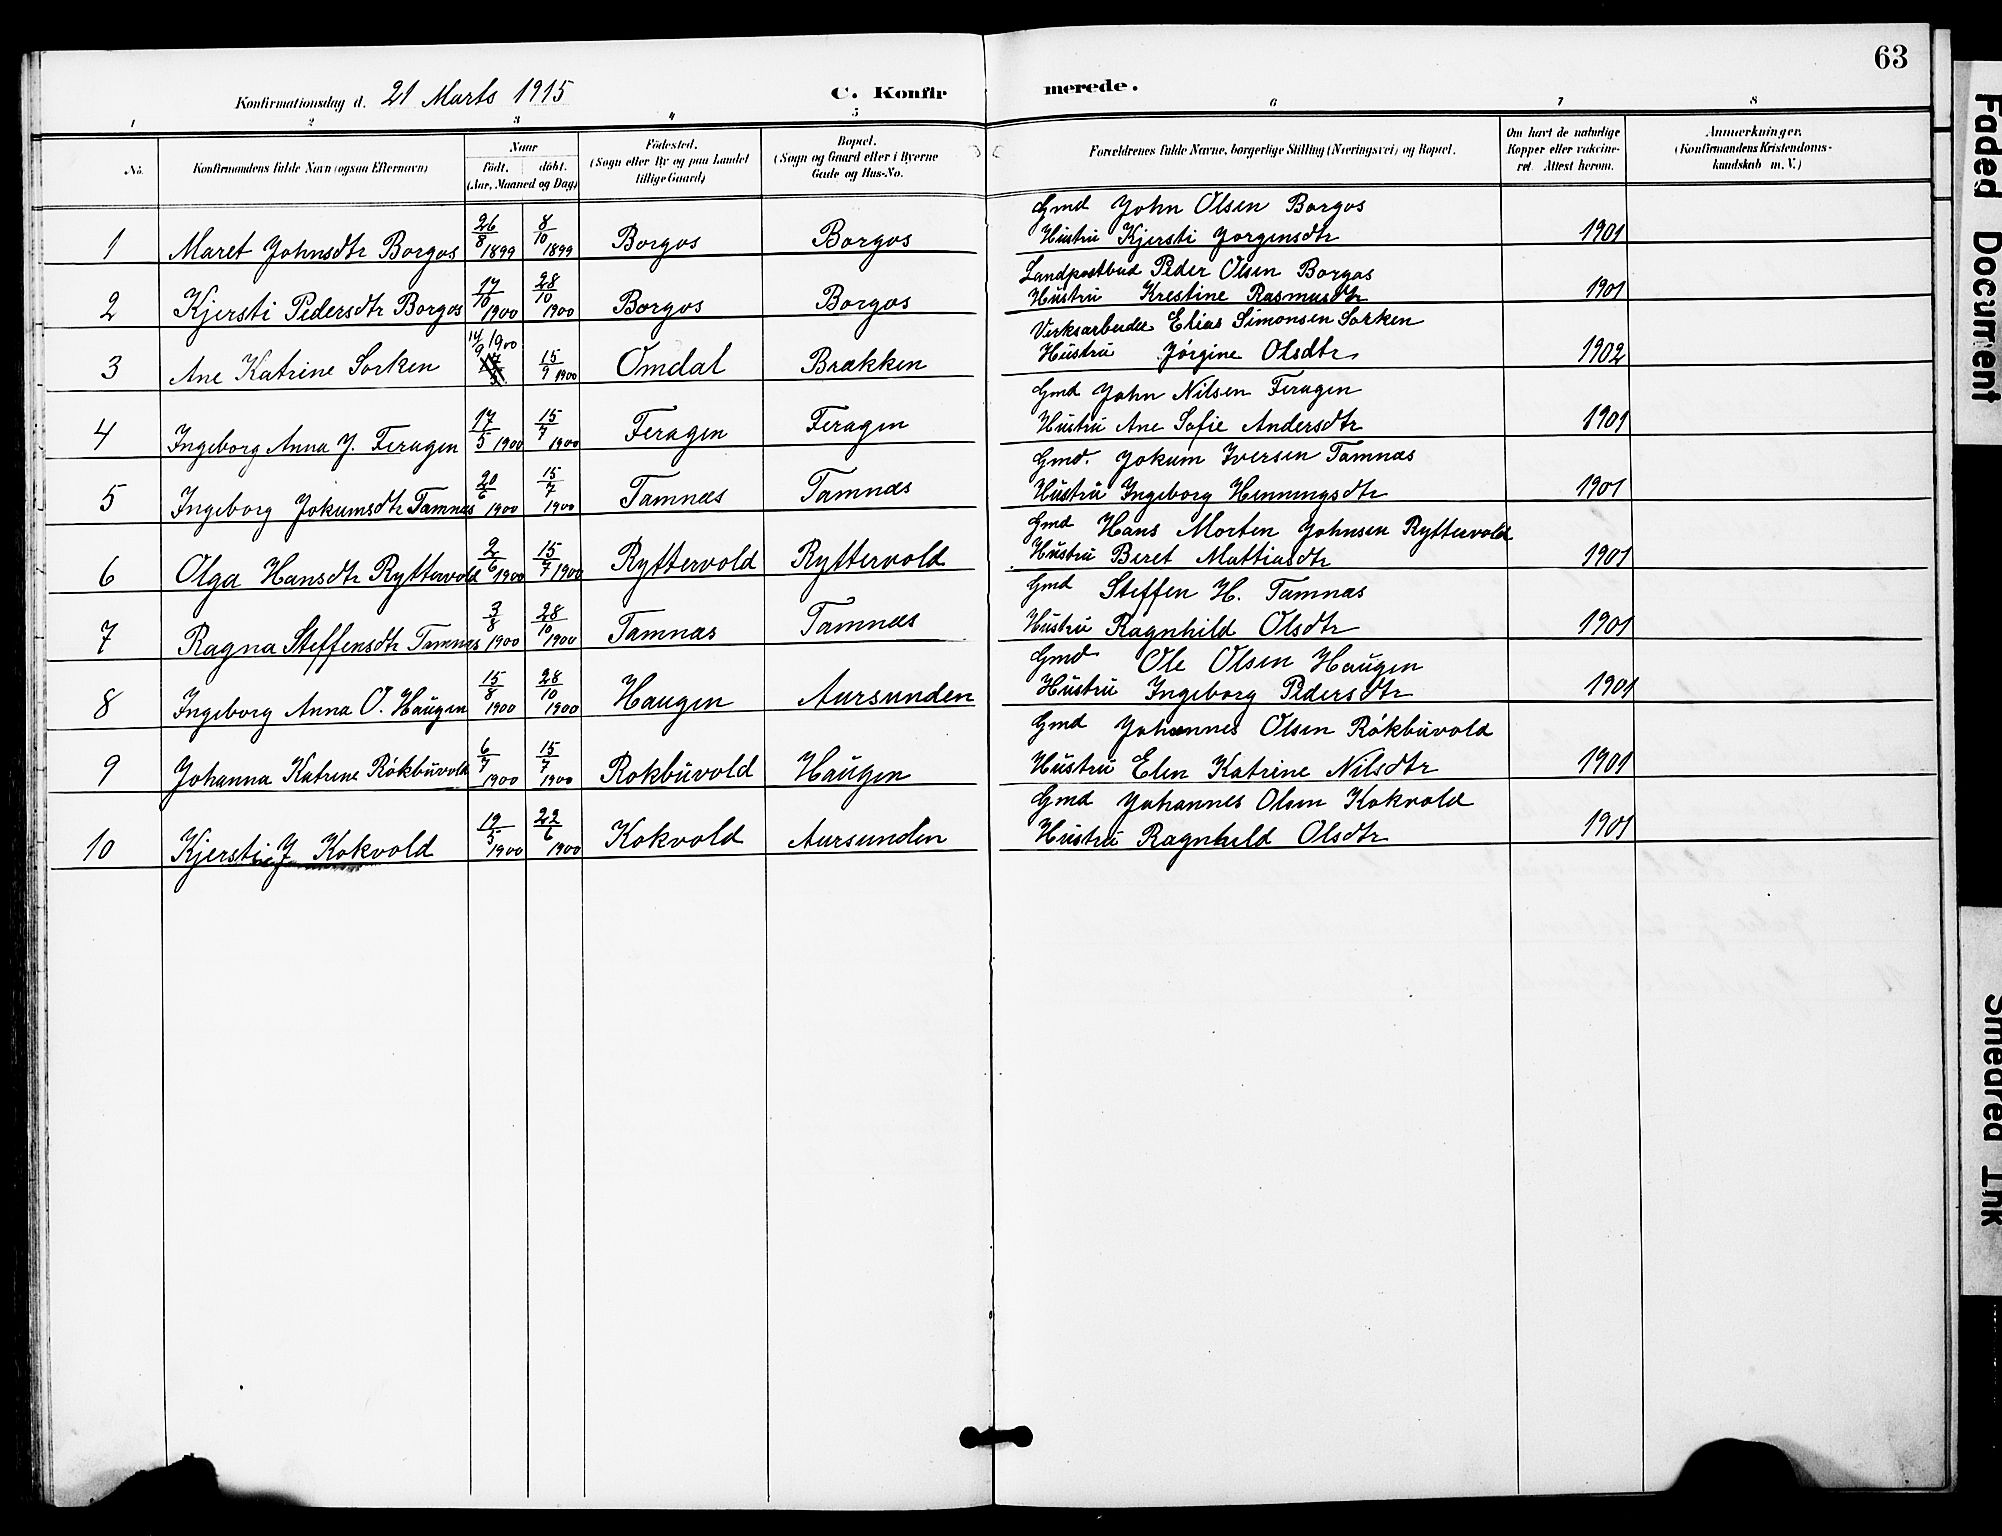 63
Konfirmationsdag d. 21 Marts 1915 C. Konfirmerede.
1 2 3 4 5 6 7 8
No. Konfirmandens fulde Navn (ogsaa Efternavn) Naar født. døbt. (Aar, Maaned og Dag) Fødested. (Sogn eller By og paa Landet tillige Gaard) Bopæl. (Sogn og Gaard eller i Byerne Gade og Hus-No. Forældrenes fulde Navne, borgerlige Stilling (Næringsvei) og Bopæl. Om havt de naturlige Kopper eller vakcineret. Attest herom. Anmerkninger. (Konfirmandens Kristendomskundskab m. V.)
Gmd John Olsen Borgos
1 Maret Johnsdtr Borgos 26/8 1899 8/10 1899 Borgos Borgos Hustru Kjersti Jorgensdtr 1901
Landpostbud Peder Olsen Borgos
2 Kjersti Pedersdtr Borgos 17/10 1900 28/10 1900 Borgos Borgos Hustru Krestine Rasmusdtr 1901
Verksarbeider Elias Simonsen Sorken
3 Ane Katrine Sorken 14/9 1900 15/9 1900 Omdal Brækken Hustru Jørgine Olsdtr 1902
Gmd John Nilsen Feragen
4 Ingeborg Anna J. Feragen 17/5 1900 15/7 1900 Feragen Feragen Hustru Ane Sofie Andersdtr 1901
Gmd. Jokum Iversen Tamnæs
5 Ingeborg Jokumsdtr Tamnes 20/6 1900 15/7 1900 Tamnæs Tamnæs Hustru Ingeborg Henningsdtr 1901
Gmd Hans Morten Johnsen Ryttervold
6 Olga Hansdtr Ryttervold 2/6 1900 15/7 1900 Ryttervold Ryttervold Hustru Beret Mattiasdtr 1901
Gmd Steffen H. Tamnæs
7 Ragna Steffensdtr Tamnes 3/8 1900 28/10 1900 Tamnæs Tamnæs Hustru Ragnhild Olsdtr 1901
Gmd Ole Olsen Haugen
8 Ingeborg Anna O. Haugen 15/8 1900 28/10 1900 Haugen Aursunden Hustru Ingeborg Pedersdtr 1901
Gmd Johannes Olsen Røkbuvold
9 Johanna Katrine Røkbuvold 6/7 1900 15/7 1900 Rokbuvold Haugen Hustru Elen Katrine Nilsdtr 1901
Gmd Johannes Olsen Kokvold
10 Kjersti J Kokvold 19/5 1900 22/6 1900 Kokvold Aursunden Hustru Ragnhild Olsdtr 1901
Faded Document
Smeared Ink